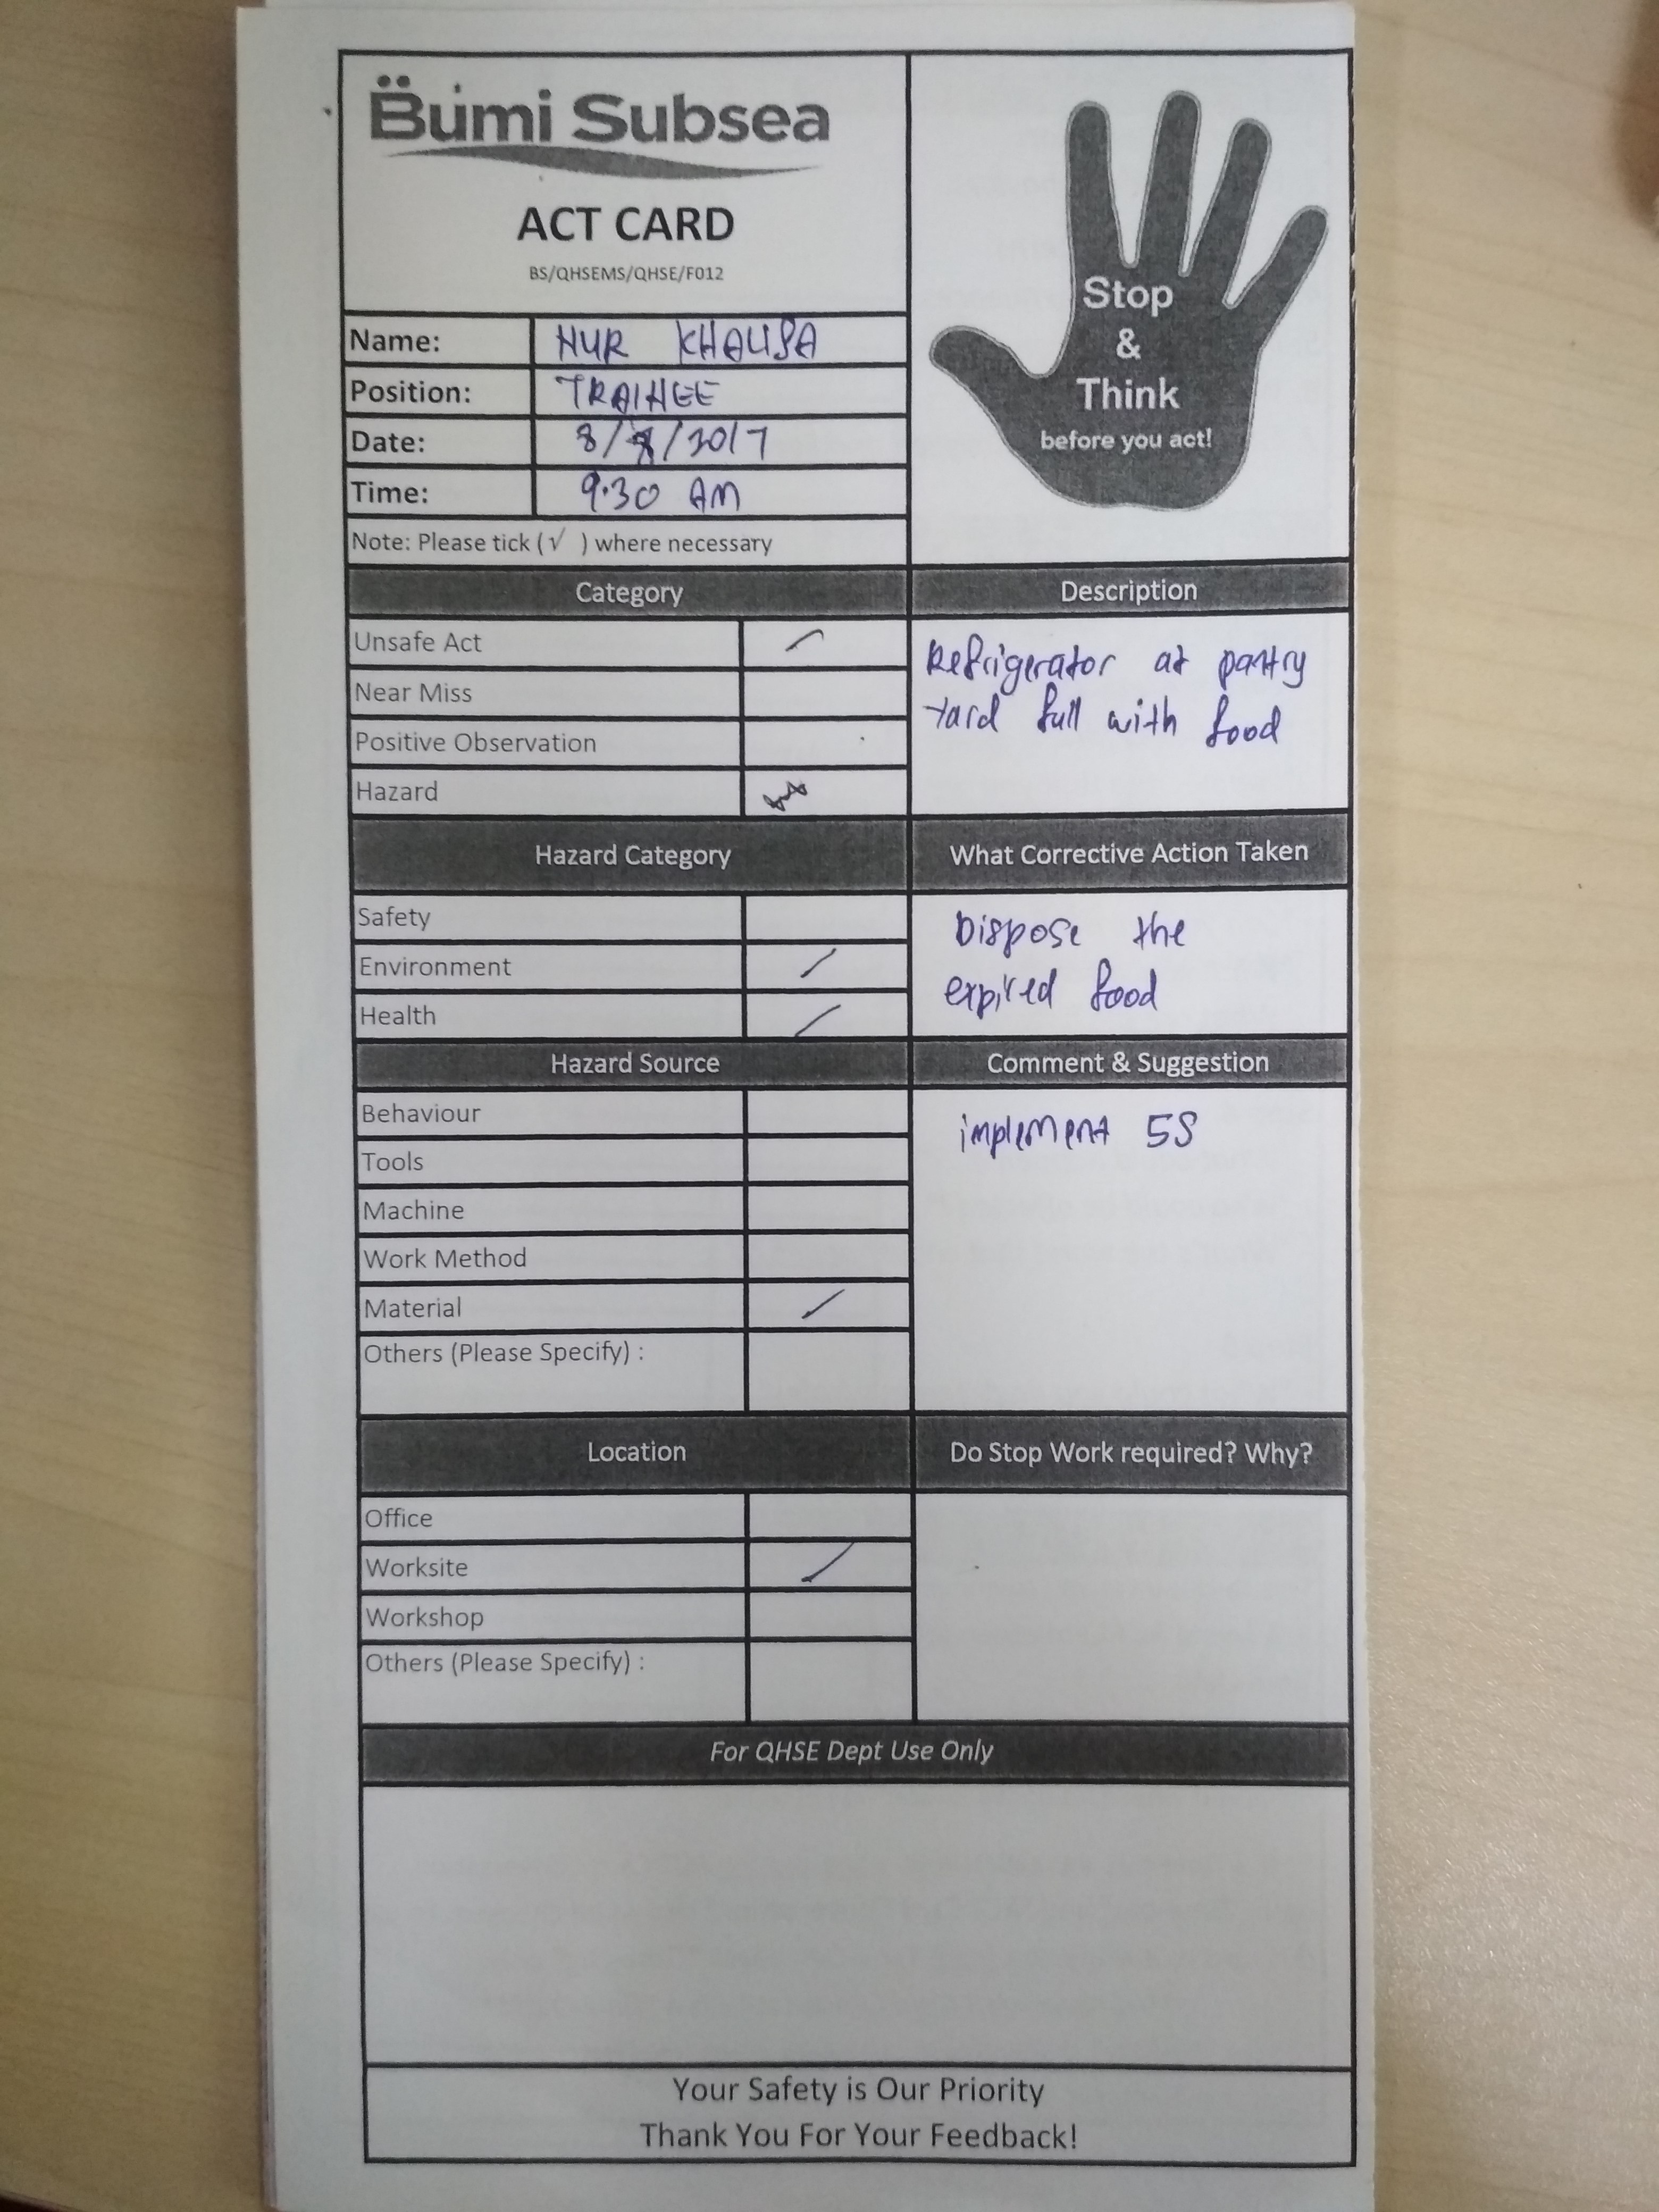 Bumi Subsea
ACT CARD
BS/QHSEMS/QHSE/F012
Stop
&
Think
before you act!
Name: NUR KHALISA
Position: TRAINEE
Date: 8/8/2017
Time: 9.30 AM
Note: Please tick (√ ) where necessary
Category
Unsafe Act
Near Miss
Positive Observation
Hazard
Description
Refrigerator at pantry
yard full with food
Hazard Category
Safety
Environment
Health
What Corrective Action Taken
Dispose the
expired food
Hazard Source
Behaviour
Tools
Machine
Work Method
Material
Others (Please Specify) :
Comment & Suggestion
implement 5S
Location
Office
Worksite
Workshop
Others (Please Specify) :
Do Stop Work required? Why?
For QHSE Dept Use Only
Your Safety is Our Priority
Thank You For Your Feedback!